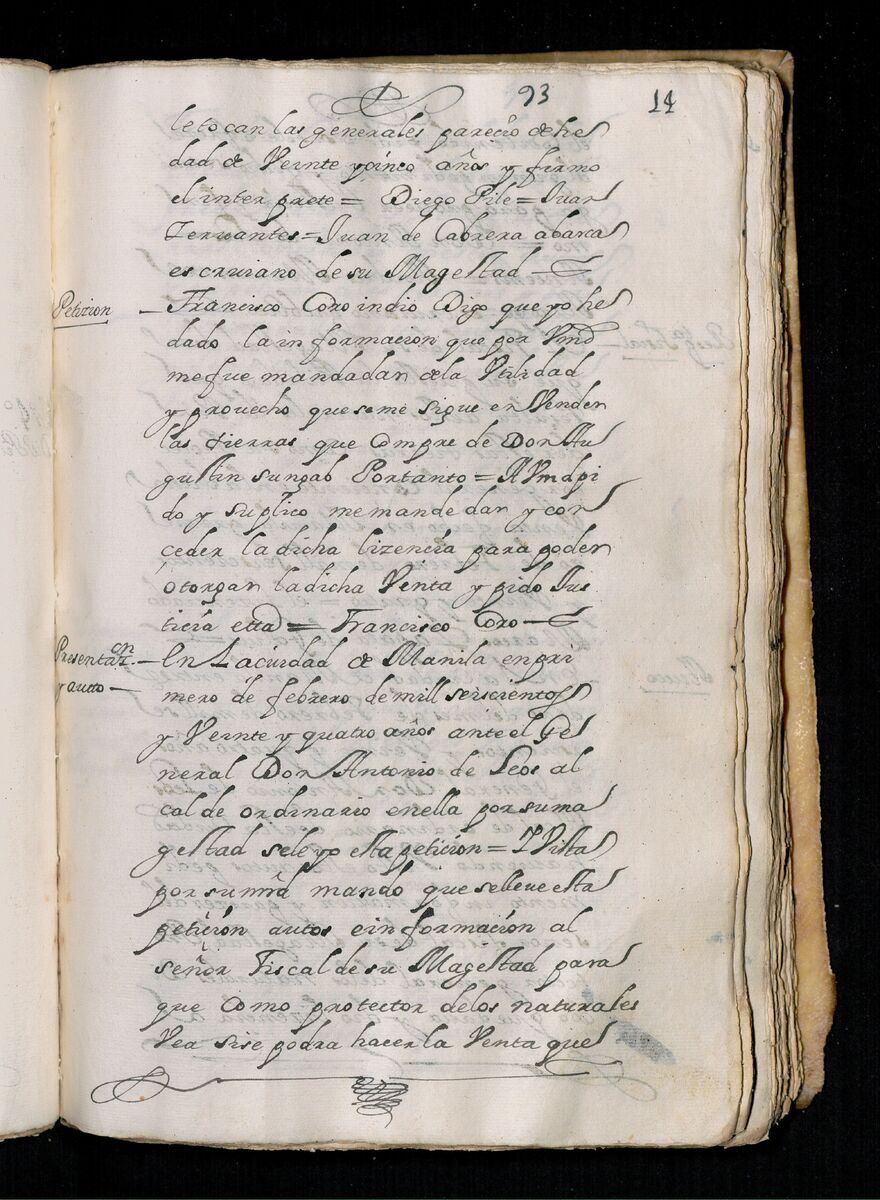 93
14
le to can las generales pareçio de he
dad de Veinte y çinco años y firmo
el inter prete = Diego Pile = Juan
Zervantes = Juan de Cabrera abarca
escrivano de su Magestad
Petizion
Francisco Coro indio Digo que yo he
dado la in formacion que por Vmd
me fue mandadar de la Vtilidad
y provecho que se me sigue en Vender
las tierras que Compre de Don Au
gustin sungab Por tanto = A Vmd pi
do y suplico me mande dar y con
ceder la dicha lizençia para poder
otorgar la dicha Venta y pido Jus
ticia etta = Francisco Coro
Presentaz.on
y autto
En La ciudad de Manila en pri
mero de febrero de mill seiscientos
y Veinte y quatro años ante el Ge
neral Don Antonio de Leos al
cal de ordinario en ella por su ma
gestad se leyo esta petiçion = Y Vista
por su mrd mandó que se lleve esta
petiçion autos e in formaçion al
señor Fiscal de su Magestad para
que Como protector de los naturales
Vea si se podra hacer la Venta que